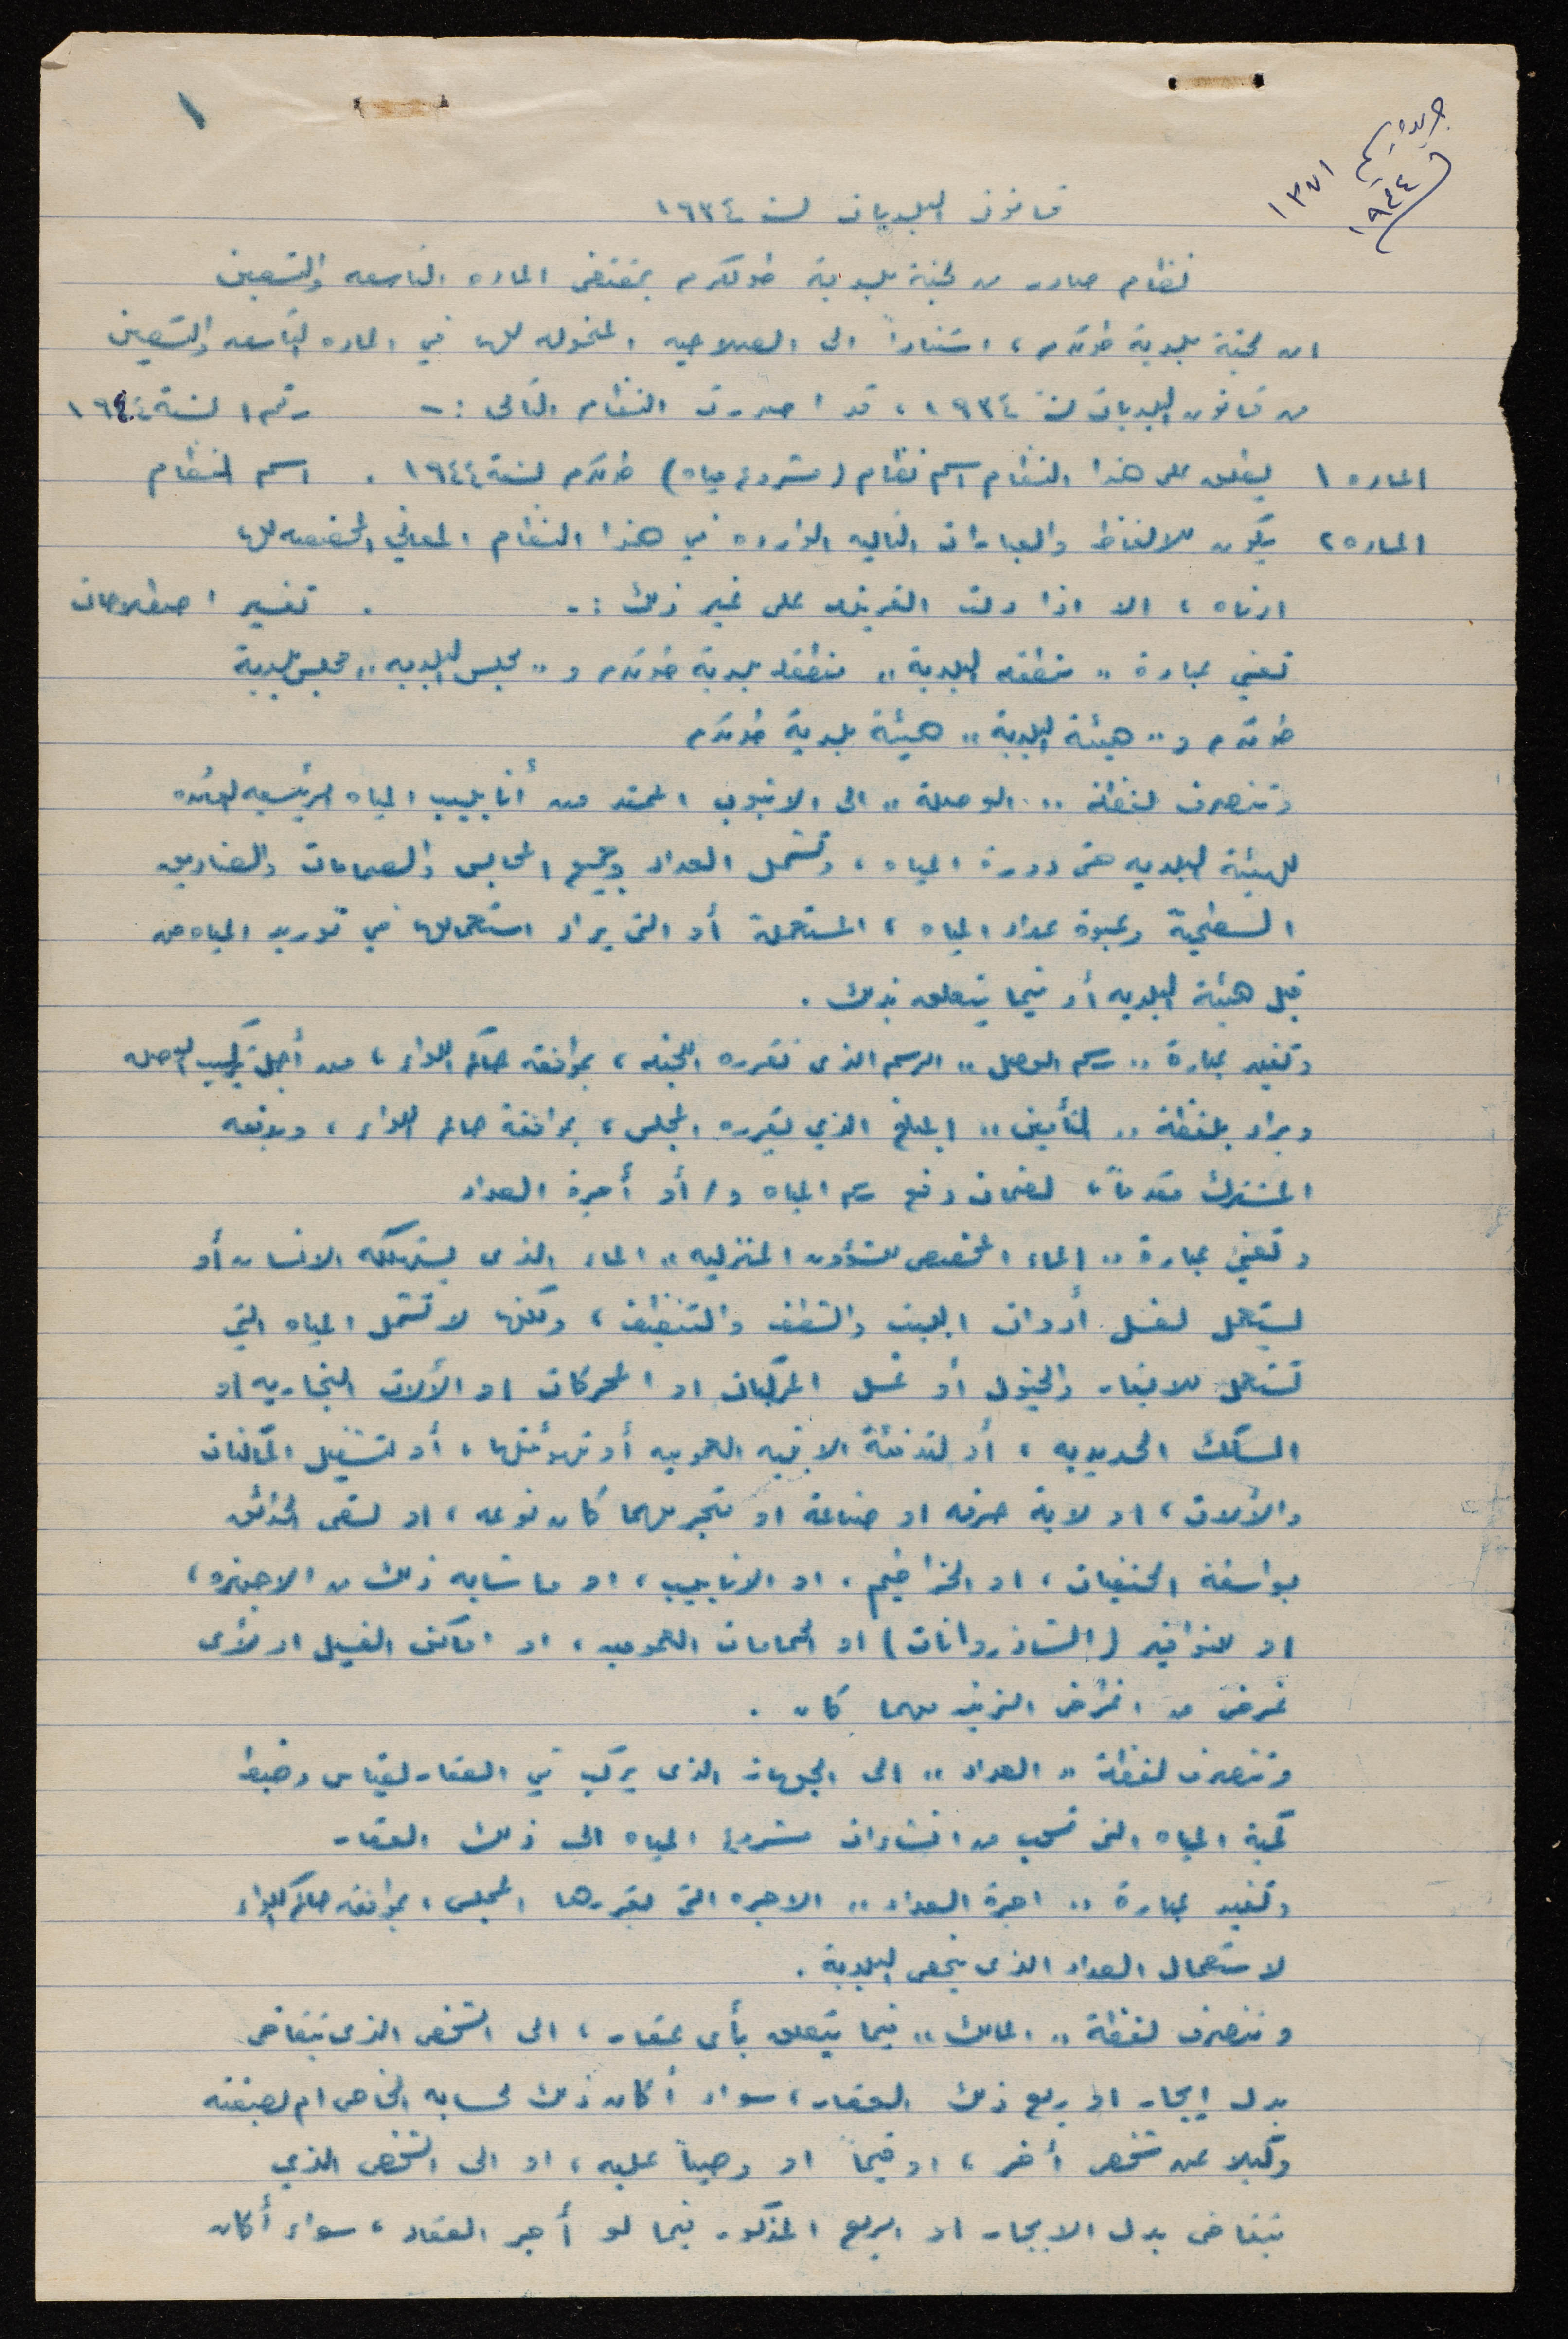 ١
جريدة رسمية
١٣٧١
١٩٤٤
قانون البلديات لسنة ١٩٣٤
نظام صادر من لجنة بلدية طولكرم بمقتضى الماده التاسعه والتسعين
ان لجنة بلدية طولكرم ، استناداً الى الصلاحيه المخوله لها في الماده التاسعه والتسعين
من قانون البلديات لسنة ١٩٣٤ ، قد اصدرت النظام التالى :- رقم ١ لسنة ١٩٤٤
الماده ١ يطلق على هذا النظام اسم نظام (مشروع مياه) طولكرم لسنة ١٩٤٤ . اسم النظام
الماده ٢ يكون للالفاظ والعبارات التاليه الوارده في هذا النظام المعاني المخصصه لها
ادناه ، الا اذا دلت القرينه على غير ذلك :- . تفسير اصطلاحات
تعني عبارة ,, منطقه البلدية ,, منطقه بلدية طولكرم و ,, مجلس البلديه ,, مجلس بلدية
طولكرم و ,, هيئة البلدية ,, هيئة بلدية طولكرم
وتنصرف لفظة ,, الوصلة ,, الى الانبوب الممتد من أنابيب المياه الرئيسيه العائده
للهيئة البلديه حتى دورة المياه ، وتشمل العداد وجميع المحابس والصمامات والصناديق
السطحية وعبوة عداد المياه ، المستعملة أو التى يراد استعمالها في توريد المياه من
قبل هيئة البلديه أو فيما يتعلق بذلك .
وتفيد عبارة ,, رسم الوصل ,, الرسم الذى تقرره اللجنه ، بموافقه حاكم اللواء ، من أجل تركيب الوصله
ويراد بلفظة ,, التأمين ,, المبلغ الذي يقرره المجلس ، بموافقة حاكم اللواء ، ويدفعه
المشترك مقدماً ، لضمان دفع رسم المياه و/أو أجرة العداد
وتعني عبارة ,, الماء المخصص للشؤون المنزليه ,, الماء الذى يستهلكه الانسان أو
يستعمل لغسل أدوات البيت والشطف والتنظيف ، ولكنها لا تشمل المياه التي
تستعمل للابقار والخيول أو غسل المركبات او المحركات او الآلات البخاريه او
السكك الحديديه ، أو لتدفئة الابنيه العموميه أو تهوئتها ، أو لتشغيل الماكنات
والآلات ، او لاية حرفه او صناعة او متجر مهما كان نوعه ، او لسقى الحدائق
بواسطة الحنفيات ، او الخراطيم ، او الانابيب ، او ما شابه ذلك من الاجهزه ،
او للنوافير (الشاذروانات) او الحمامات العموميه ، او اماكن الغسيل او لأى
غرض من اغراض الزينه مهما كان .
وتنصرف لفظة ,, العداد ,, الى الجهاز الذى يركب في العقار لقياس وضبط
كمية المياه التى تسحب من انشاءات مشروع المياه الى ذلك العقار
وتفيد عبارة ,, اجرة العداد ,, الاجره التى يقررها المجلس ، بموافقه حاكم اللواء
لاستعمال العداد الذى يخص البلدية .
وتنصرف لفظة ,, المالك ,, فيما يتعلق بأى عقار ، الى الشخص الذى يتقاضى
بدل ايجار او ريع ذلك العقار ، سواء أكان ذلك لحسابه الخاص ام بصفته
وكيلا عن شخص أخر ، او قيماً او وصياً عليه ، او الى الشخص الذي
يتقاضى بدل الايجار او الريع المذكور فيما لو أجر العقار ، سواء أكان